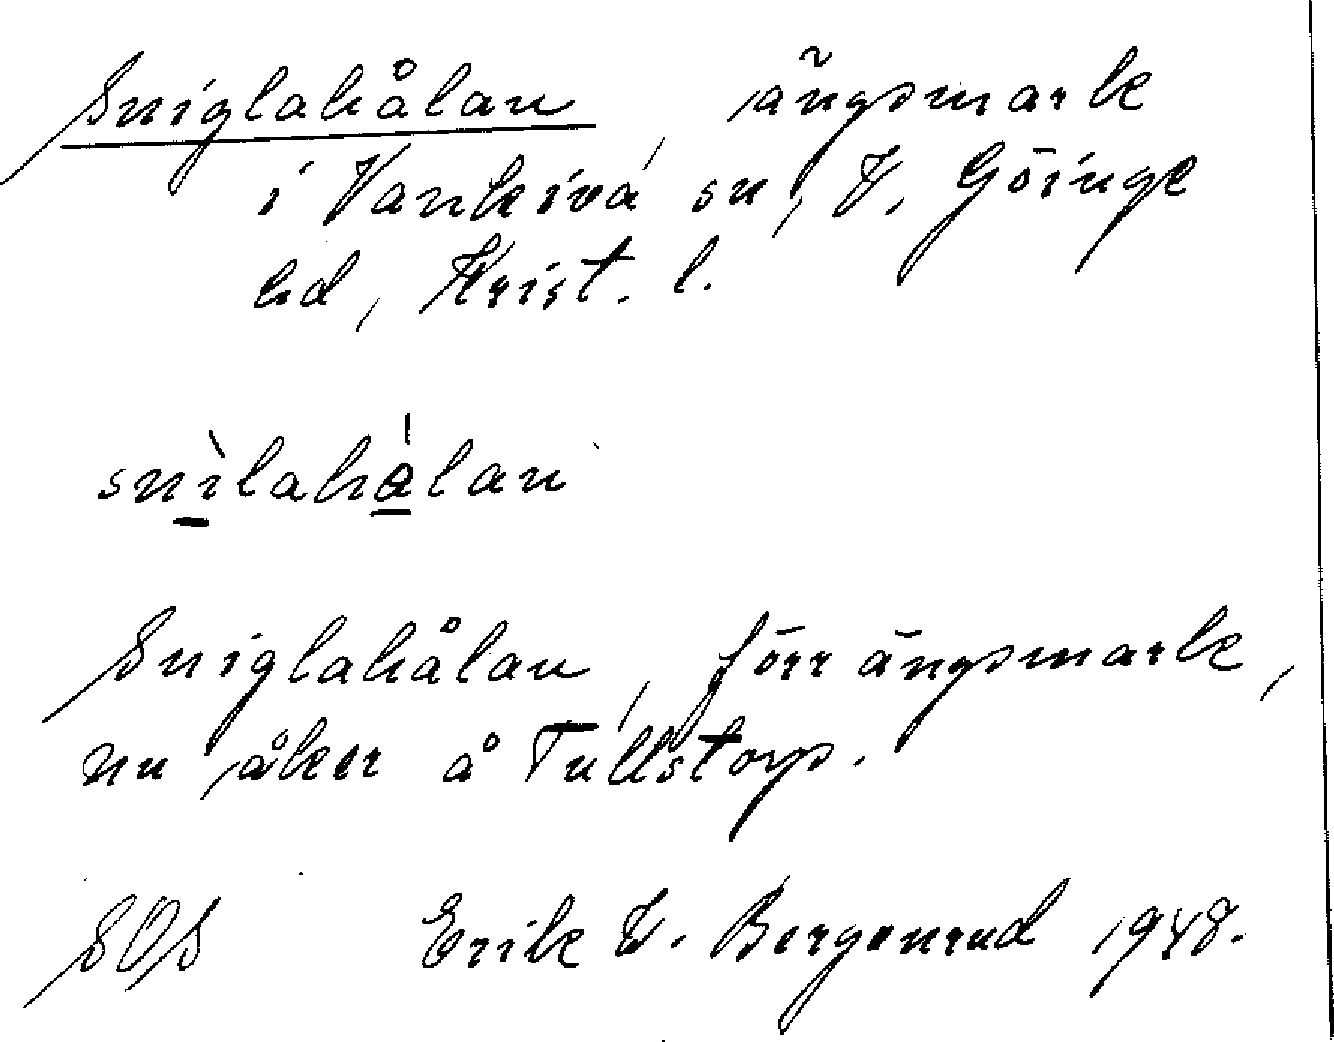 Sniglahålan, ängsmark
i Vankiva sn, V. Göinge
hd, Krist. l.
snìlahálan
Sniglahålan, förr ängsmark,
nu åker å Tullstorp.
SOS Erik W. Bergenrud 1948.